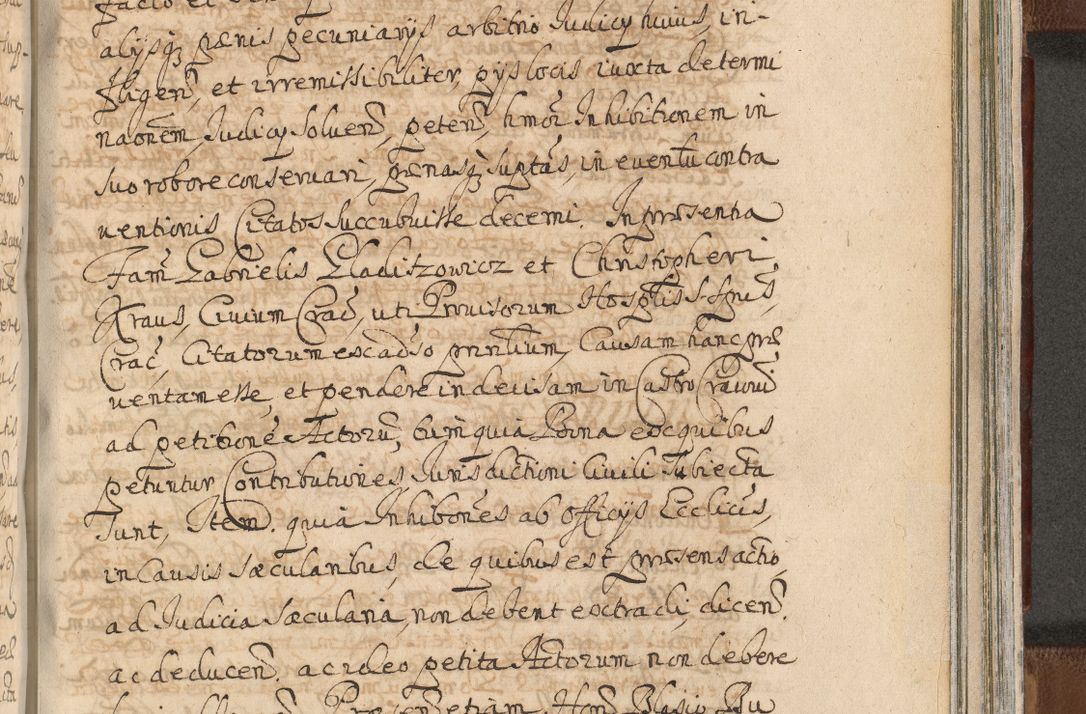 alijsq́ pœnis pecuniarijs arbitrio Judicij huius, in-
fligen̄, et irremissibiliter, pijs locis iuxta determi
naōnem Judicij soluen̄, peten̄, hmōi Inhibitionem in
suo robore conseruari, pœnasq́ suptas, in euentū contra
uentionis Citatos succubuisse decerni. In prœsentia
Fam̄ Gabrielis Gladiszowicz et Christopheri
Kraus, Ciuium Crac̄, uti Prouisorum Hosptlis S. Spūs,
Crac̄, Citatorum ex aduso pntium, Causam hanc prœ
uentam esse, et pendere indecisam in Castro Cracouī
ad petitionē Actorū, tum quia Bona ex quibus
petuntur Contributiones, Jurisdictioni Ciuili subiecta
sunt, Item. quia Inhibōnes ab officijs Ecclicis,
in Causis sœcularibus, de quibus est prœsens actio,
ad Judicia sœcularia, non debent extradi, dicen̄.
ac deducen̄, ac ideo petita Actorum non debere